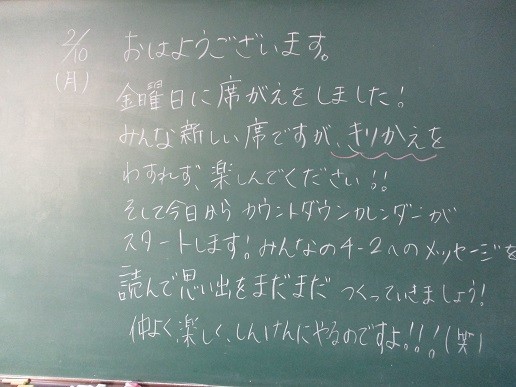 2/10
(月)
おはようございます。
金曜日に席がえをしました!
みんな新しい席ですが、きりかえを
わすれず、楽しんでください!!
そして今日からカウントダウンカレンダーが
スタートします!みんなの4-2へのメッセージを
読んで思い出をまだまだ つくっていきましょう!
仲よく楽しく、しんけんにやるのですよ!!!(笑)